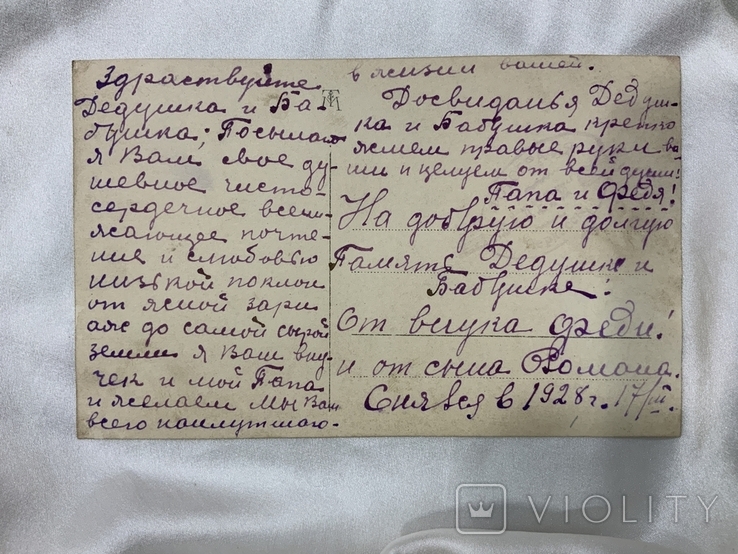 Здраствуйте
Дедушка и Ба-
бушка; Посылаю
я Вам свое ду-
шевное чисто-
сердечное всени-
жающее почте-
ние и слюбовью
низькой поклон
от ясной зари
аж до самой сырой
земли я Ваш вну-
чек и мой Папа
и желаем мы Вам
всего наилутшаго-
в жизни вашей.
Досвиданья Дедуш-
ка и Бабушка крепко
жмем правые руки ва-
ши и целуем от всей души!
Папа и Федя!
На добрую и долгую
Память Дедушке и
Бабушке!
От внука Феди!
и от сына Романа.
Снявся в 1928 г. 17/III.
VIOLITY